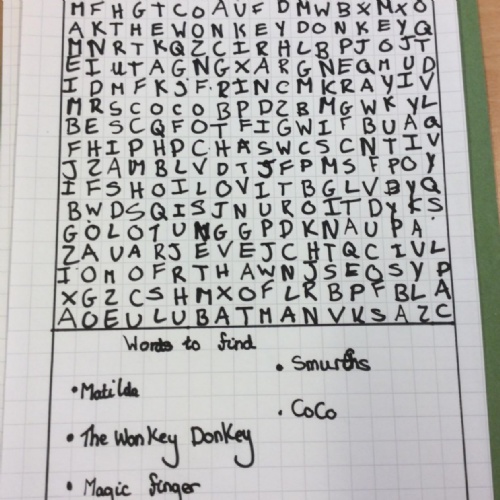 M F H G T C O A U F D M W B X M X O
A K T H E W O N K E Y D O N K E Y Q
M N R T K Q Z C I R H L B P J O J T
E I U T A G N G X A R G N E Q M U D
I D M F K J F R I N C M K R A Y I V
M R S C O C O B P D Z B M G W K Y L
B E S C Q F O T F I G W I F B U A Q
F H I P H P C H A S W C S C N T I V
J Z A M B L V D T J F P M S F P O Y
I F S H O I L O V I T B G L V B Y Q
B W D S Q I S J N U R O I T D Y K S
G O L O T U N G G P D K N A U P A
Z A U A R J E V E J C H T Q C I V L
I O M O F R T H A W N J S E O S Y P
X G Z C S H M X O F L R B P F B L A
A O E U L U B A T M A N V K S A Z C
Words to find
• Smurfhs
• Matilda
• CoCo
• The Wonkey Donkey
• Magic finger